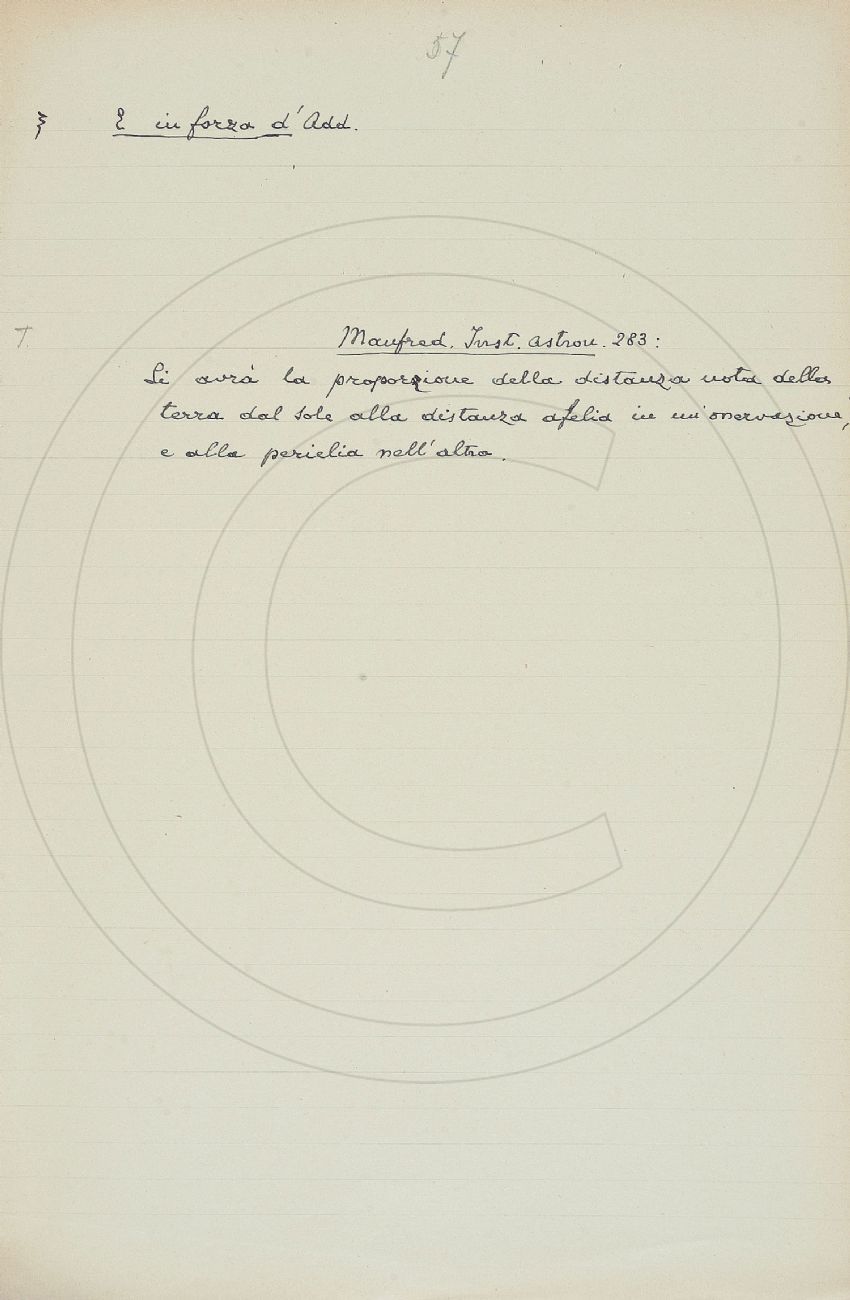 57
§ E in forza d'Add.
T. Manfred. Inst. astron. 283:
Si avrà la proporzione della distanza nota della
terra dal Sole alla distanza afelia in un'osservazione,
e alla perielia nell'altra.